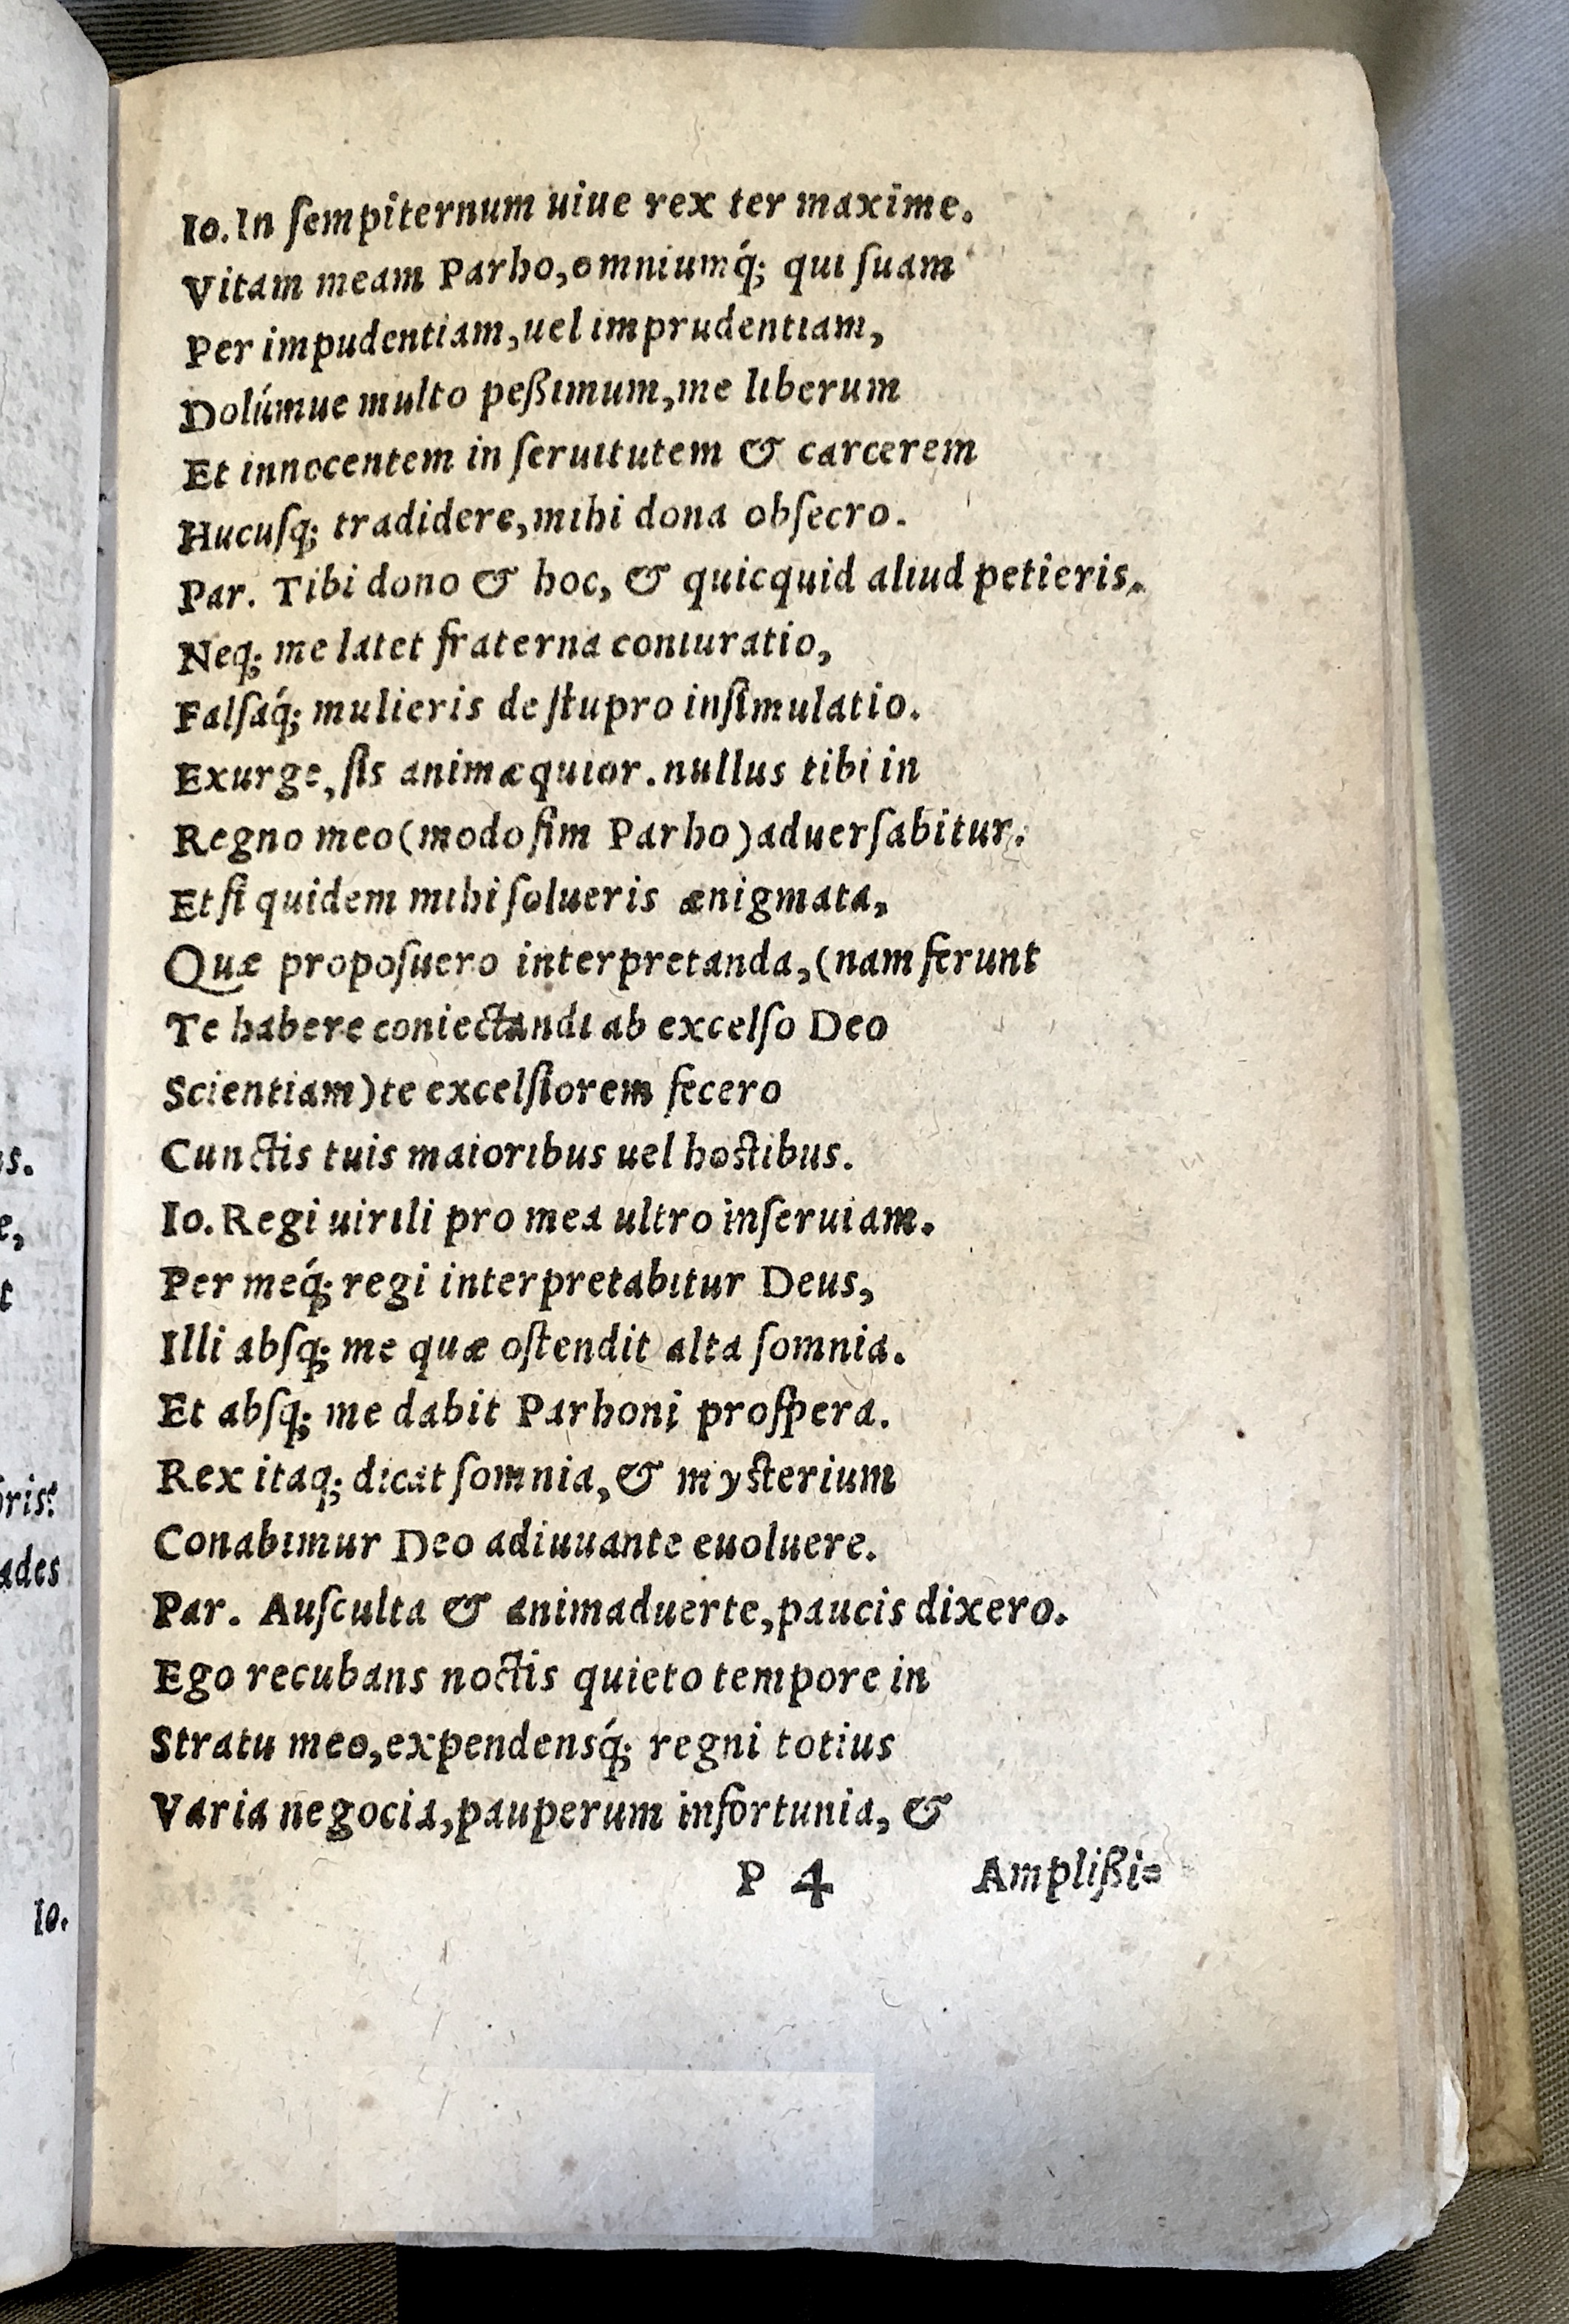 Io. In ſempiternum uiue rex ter maxime.
Vitam meam Parho, omniumq́; qui ſuam
Per impudentiam, uel imprudentiam,
Dolúmue multo peßimum, me liberum
Et innocentem in ſeruitutem & carcerem
Hucuſq; tradidere, mihi dona obſecro.
Par. Tibi dono & hoc, & quicquid aliud petieris.
Neq; me latet fraterna coniuratio,
Falſaq́; mulieris de ſtupro inſimulatio.
Exurge, ſis animæquior. nullus tibi in
Regno meo (modo ſim Parho) aduerſabitur.
Et ſi quidem mihi ſolueris ænigmata,
Quæ propoſuero interpretanda, (nam ferunt
Te habere coniectandi ab excelſo Deo
Scientiam) te excelſiorem fecero
Cunctis tuis maioribus uel hoſtibus.
Io. Regi uirili pro mea ultro inſeruiam.
Per meq́; regi interpretabitur Deus,
Illi abſq; me quæ oſtendit alta ſomnia.
Et abſq; me dabit Parhoni proſpera.
Rex itaq; dicat ſomnia, & myſterium
Conabimur Deo adiuuante euoluere.
Par. Auſculta & animaduerte, paucis dixero.
Ego recubans noctis quieto tempore in
Stratu meo, expendensq́; regni totius
Varia negocia, pauperum infortunia, &
P 4 Amplißi=
s.
e,
t
oris?
ades
Io.